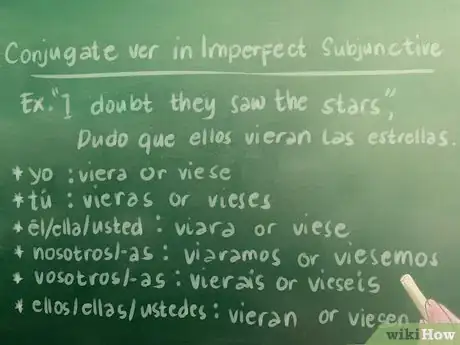 Conjugate ver in Imperfect Subjunctive
Ex. "I doubt they saw the stars",
Dudo que ellos vieran las estrellas.
* yo : viera or viese
* tú : vieras or vieses
* él/ella/usted : viara or viese
* nosotros/-as : viaramos or viesemos
* vosotros/-as : vierais or vieseis
* ellos/ellas/ustedes : vieran or viesen
wikiHow